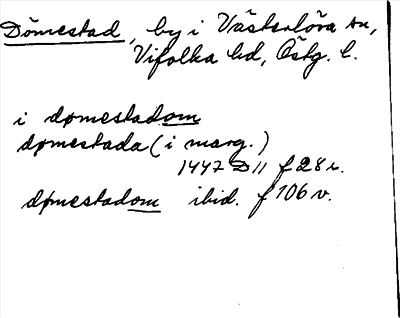 Dömestad, by i Västerlösa sn,
Vifolka hd, Östg. l.
i dømestadom
dømestada (i marg.)
1447 D 11 f 28 r.
dømestadom ibid. f 106 v.